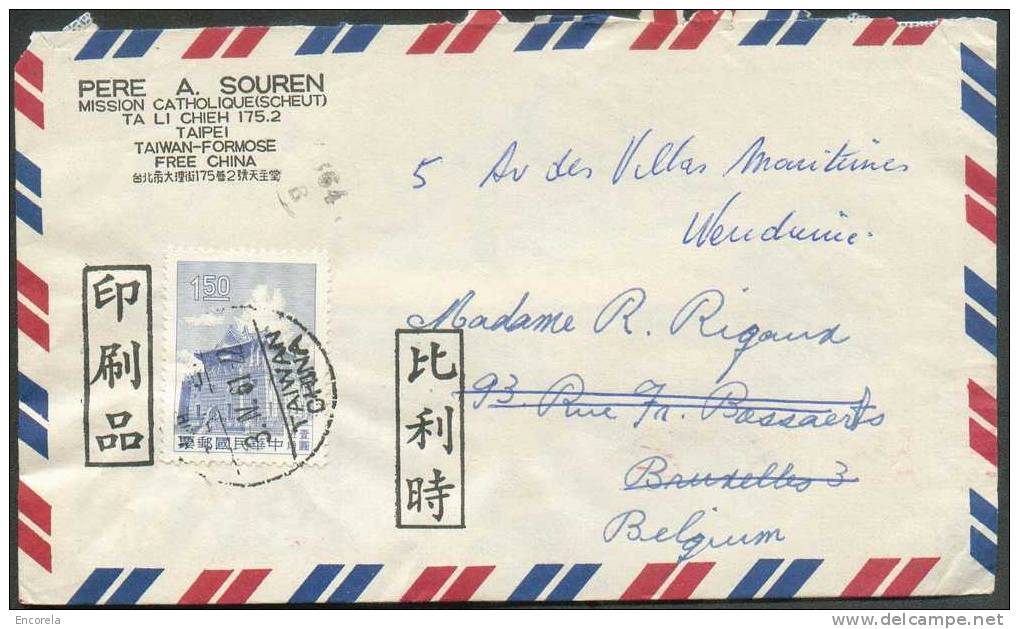 PERE A. SOUREN
MISSION CATHOLIQUE(SCHEUT)
TA LI CHIEH 175.2
TAIPEI
TAIWAN-FORMOSE
FREE CHINA
台北市大理街175巷2號天主堂
5 Av des Villas Maritimes
Wenduine
Madame R. Rigaux
93 Rue Fr. Bossaerts
Bruxelles 3
Belgium
印刷品
比利時
1.50
TAIWAN
CHINA
票郵國民華中
Encorela
www.delcampe.net